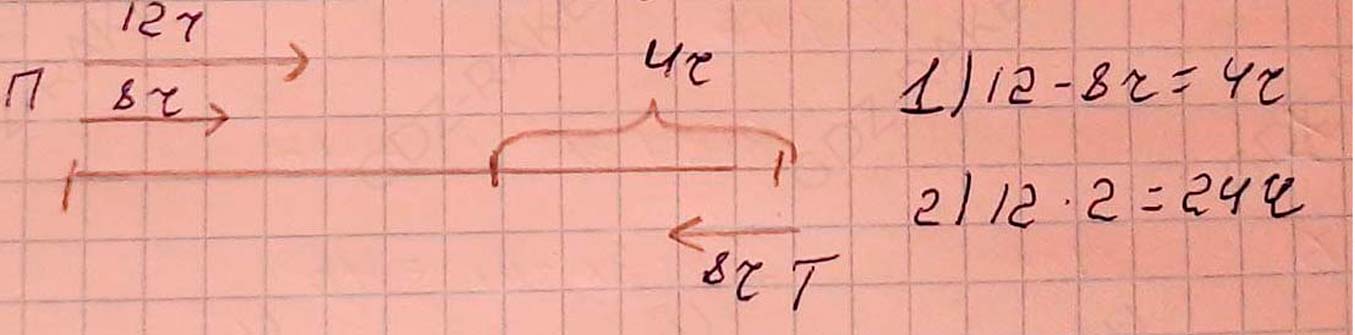 12ч
П 8ч
4ч
8ч Т
1) 12 - 8ч = 4ч
2) 12 · 2 = 24ч